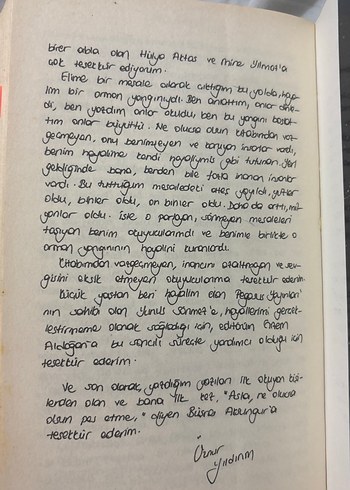 birer abla olan Hülya Aktaş ve Mine Yılmaz'a
çok teşekkür ediyorum.
Elime bir meşale alarak çıktığım bu yolda, haya-
lim bir orman yangınıydı. Ben anlattım, onlar dinle-
di, ben yazdım onlar okudu, ben bu yangını başlat-
tım onlar büyüttü. Ne olursa olsun kitabından vaz-
geçmeyen, onu benimseyen ve koruyan insanlar vardı,
benim hayalime kendi hayaliymiş gibi tutunan. Yeri
geldiğinde bana, benden bile fazla inanan insanlar
vardı. Bu tuttuğum meşaledeki ateş yayıldı, yüzler
oldu, binler oldu, on binler oldu. Daha da arttı, mil-
yonlar oldu. İşte o parlayan, sönmeyen meşaleleri
taşıyan benim okuyucularımdı ve benimle birlikte o
orman yangınının hayalini kuranlardı.
Kitabımdan vazgeçmeyen, inancını azaltmayan ve sev-
gisini eksik etmeyen okuyucularıma teşekkür ederim.
Küçük yaştan beri hayalim olan Pegasus Yayınları'
nın sahibi olan Yunus Sönmez'e, hayallerimi gerçek-
leştirmeme olanak sağladığı için, editörüm Ekrem
Aldoğan'a bu sancılı süreçte yardımcı olduğu için
teşekkür ederim.
Ve son olarak, yazdığım yazıları ilk okuyan kişi-
lerden olan ve bana ilk kez, "Asla, ne olursa
olsun pes etme," diyen Büşra
teşekkür ederim.
Öznur
Yıldırım